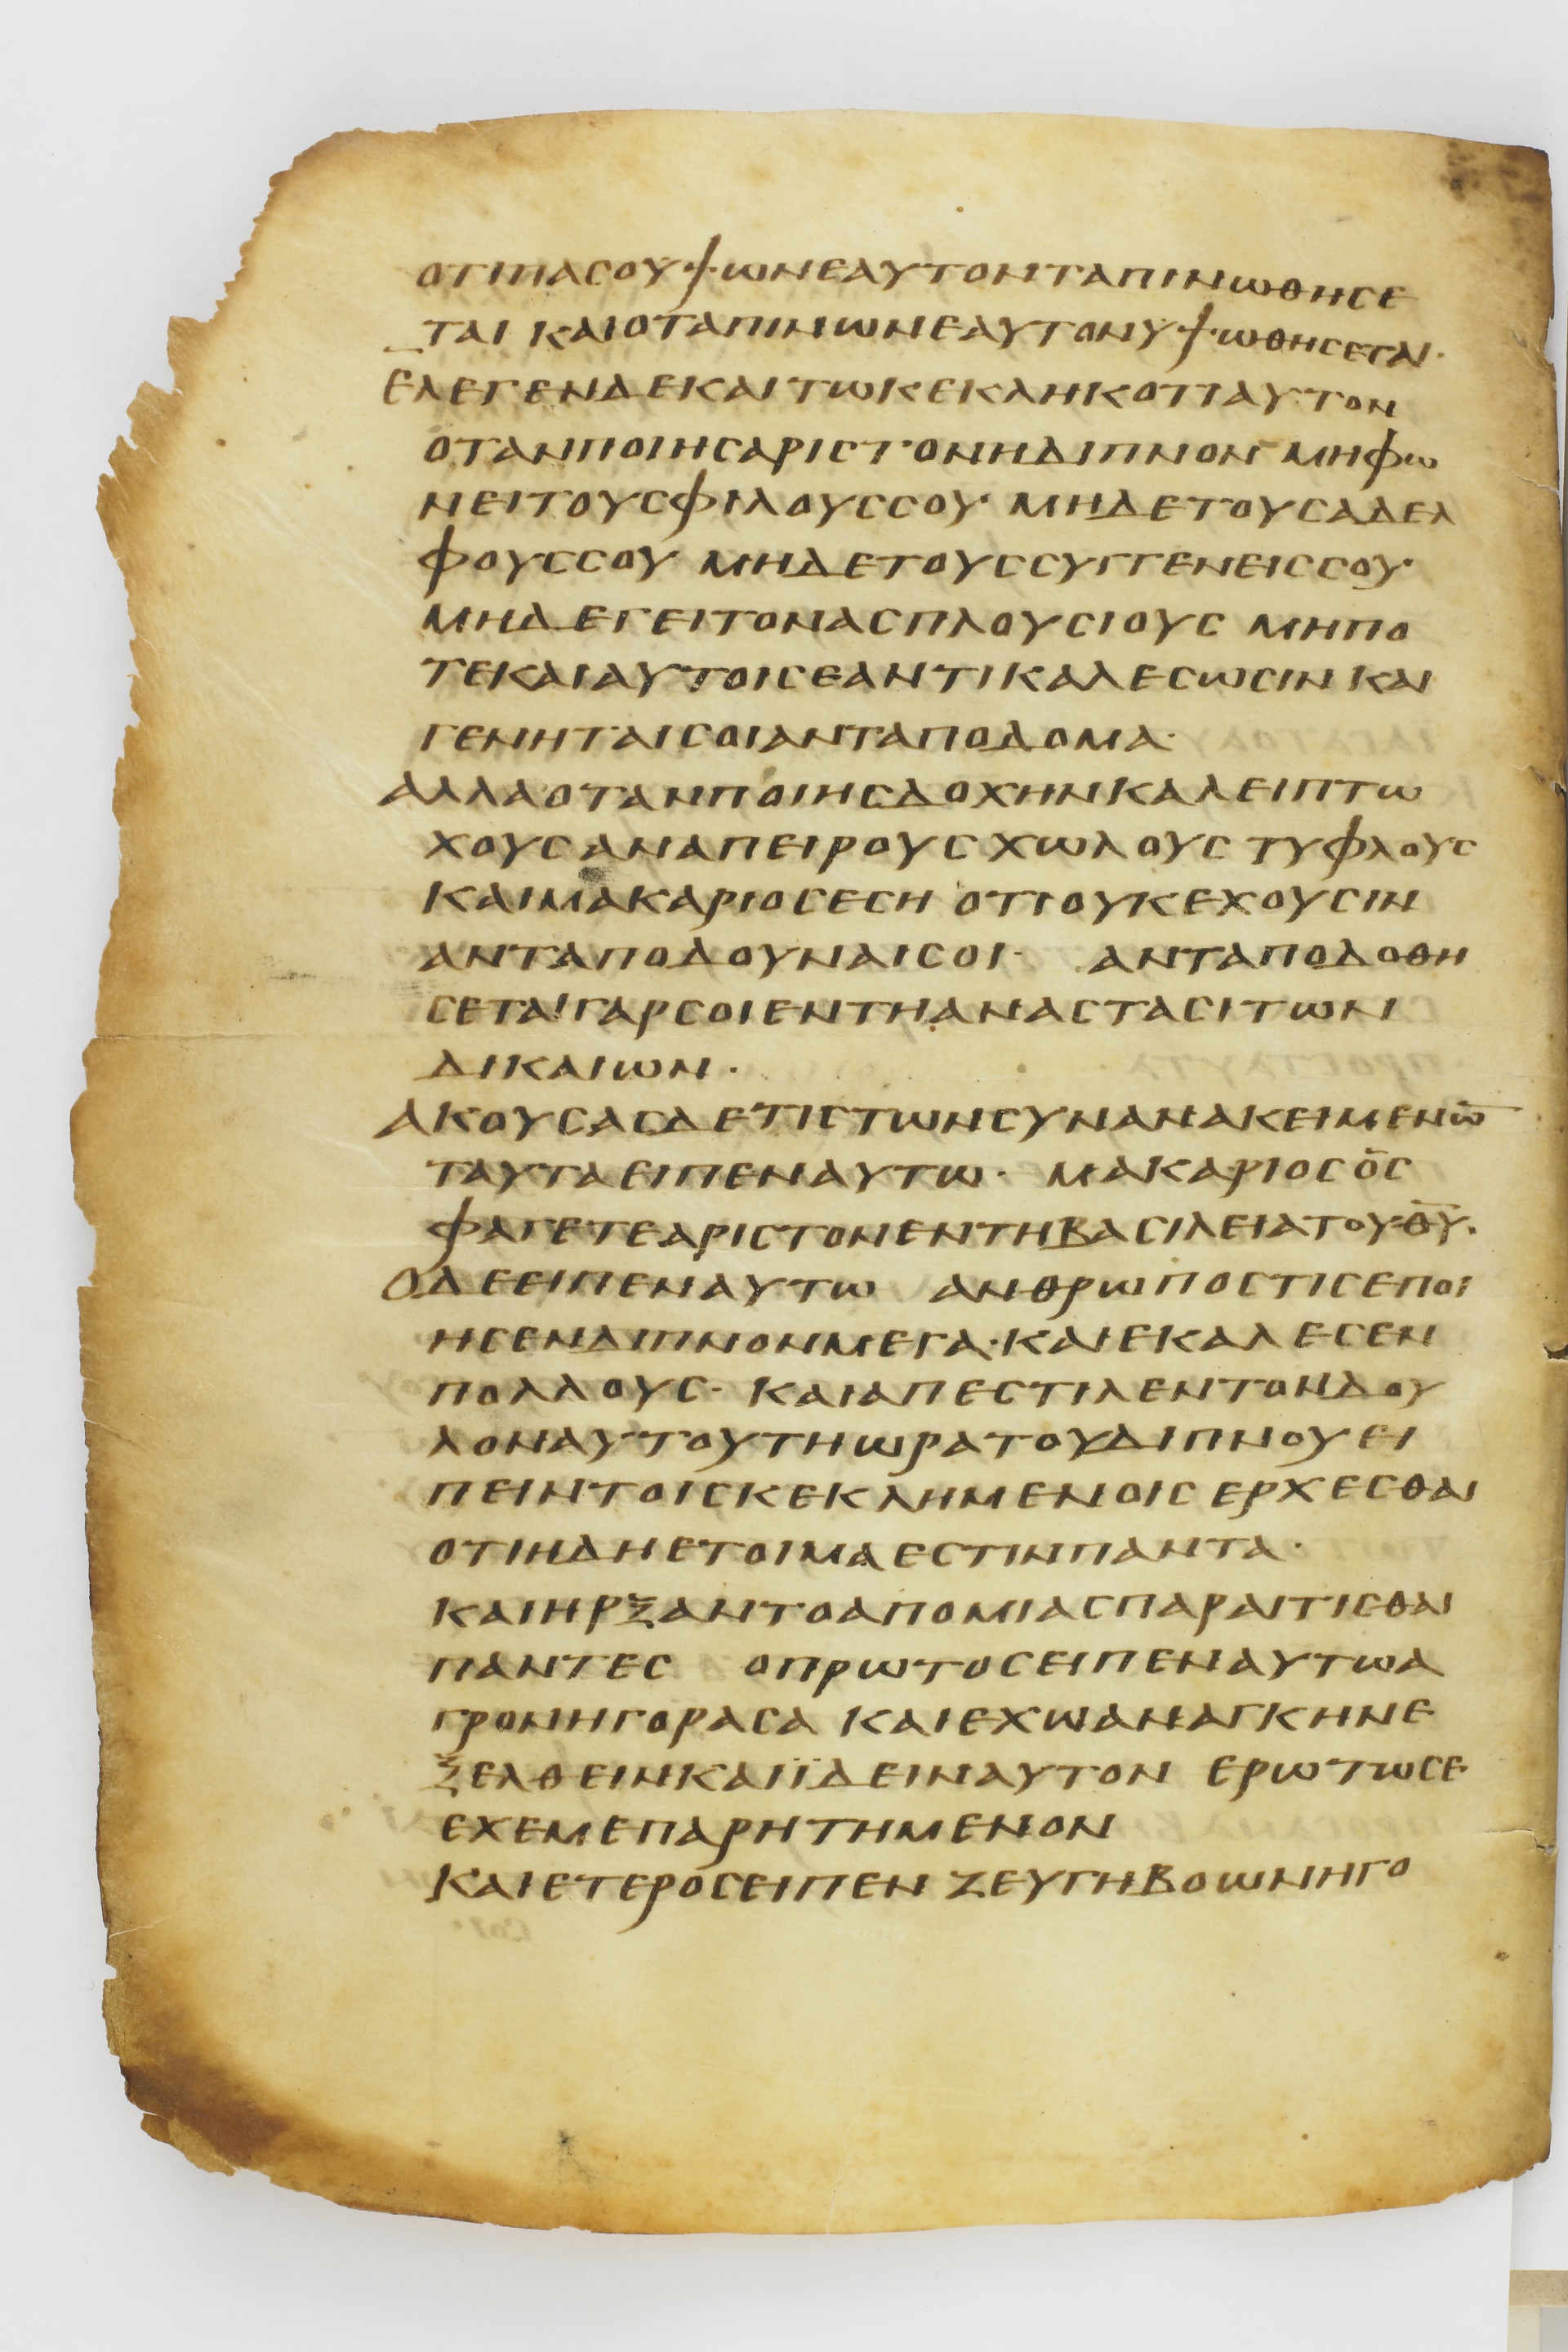 ΟΤΙΠΑСΟΥΨΩΝΕΑΥΤΟΝΤΑΠΙΝΩΘΗСΕ
ΤΑΙ ΚΑΙΟΤΑΠΙΝΩΝΕΑΥΤΟΝΥΨΩΘΗСΕΤΑΙ·
ΕΛΕΓΕΝΔΕΚΑΙΤΩΚΕΚΛΗΚΟΤΙΑΥΤΟΝ
ΟΤΑΝΠΟΙΗСΑΡΙСΤΟΝΗΔΙΠΝΟΝ ΜΗΦΩ
ΝΕΙΤΟΥСΦΙΛΟΥССΟΥ ΜΗΔΕΤΟΥСΑΔΕΛ
ΦΟΥССΟΥ ΜΗΔΕΤΟΥССΥΓΓΕΝΕΙССΟΥ·
ΜΗΔΕΓΕΙΤΟΝΑСΠΛΟΥСΙΟΥС ΜΗΠΟ
ΤΕΚΑΙΑΥΤΟΙСΕΑΝΤΙΚΑΛΕСΩСΙΝ ΚΑΙ
ΓΕΝΗΤΑΙСΟΙΑΝΤΑΠΟΔΟΜΑ·
ΑΛΛΑΟΤΑΝΠΟΙΗСΔΟΧΗΝΚΑΛΕΙΠΤΩ
ΧΟΥСΑΝΑΠΕΙΡΟΥС ΧΩΛΟΥС ΤΥΦΛΟΥС
ΚΑΙΜΑΚΑΡΙΟСΕСΗ ΟΤΙΟΥΚΕΧΟΥСΙΝ
ΑΝΤΑΠΟΔΟΥΝΑΙСΟΙ· ΑΝΤΑΠΟΔΟΘΗ
СΕΤΑΙΓΑΡСΟΙΕΝΤΗΑΝΑСΤΑСΙΤΩΝ
ΔΙΚΑΙΩΝ·
ΑΚΟΥСΑСΔΕΤΙСΤΩΝСΥΝΑΝΑΚΕΙΜΕΝΩ̅
ΤΑΥΤΑΕΙΠΕΝΑΥΤΩ· ΜΑΚΑΡΙΟСΟС
ΦΑΓΕΤΕΑΡΙСΤΟΝΕΝΤΗΒΑСΙΛΕΙΑΤΟΥΘ̅Υ̅·
ΟΔΕΕΙΠΕΝΑΥΤΩ ΑΝΘΡΩΠΟСΤΙСΕΠΟΙ
ΗСΕΝΔΙΠΝΟΝΜΕΓΑ·ΚΑΙΕΚΑΛΕСΕΝ
ΠΟΛΛΟΥС· ΚΑΙΑΠΕСΤΙΛΕΝΤΟΝΔΟΥ
ΛΟΝΑΥΤΟΥΤΗΩΡΑΤΟΥΔΙΠΝΟΥΕΙ
ΠΕΙΝΤΟΙСΚΕΚΛΗΜΕΝΟΙС ΕΡΧΕСΘΑΙ
ΟΤΙΗΔΗΕΤΟΙΜΑΕСΤΙΝΠΑΝΤΑ·
ΚΑΙΗΡΞΑΝΤΟΑΠΟΜΙΑСΠΑΡΑΙΤΙСΘΑΙ
ΠΑΝΤΕС ΟΠΡΩΤΟСΕΙΠΕΝΑΥΤΩΑ
ΓΡΟΝΗΓΟΡΑСΑ ΚΑΙΕΧΩΑΝΑΓΚΗΝΕ
ΞΕΛΘΕΙΝΚΑΙΪΔΕΙΝΑΥΤΟΝ ΕΡΩΤΩСΕ
ΕΧΕΜΕΠΑΡΗΤΗΜΕΝΟΝ
ΚΑΙΕΤΕΡΟСΕΙΠΕΝ ΖΕΥΓΗΒΟΩΝΗΓΟ